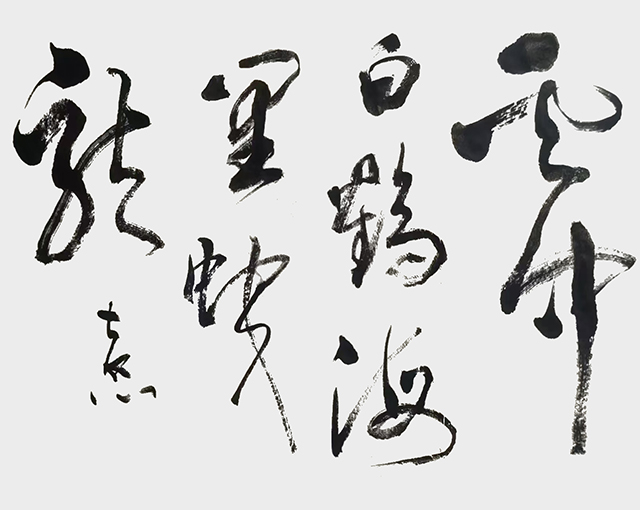 雲中
白鶴海
里蛟
龍